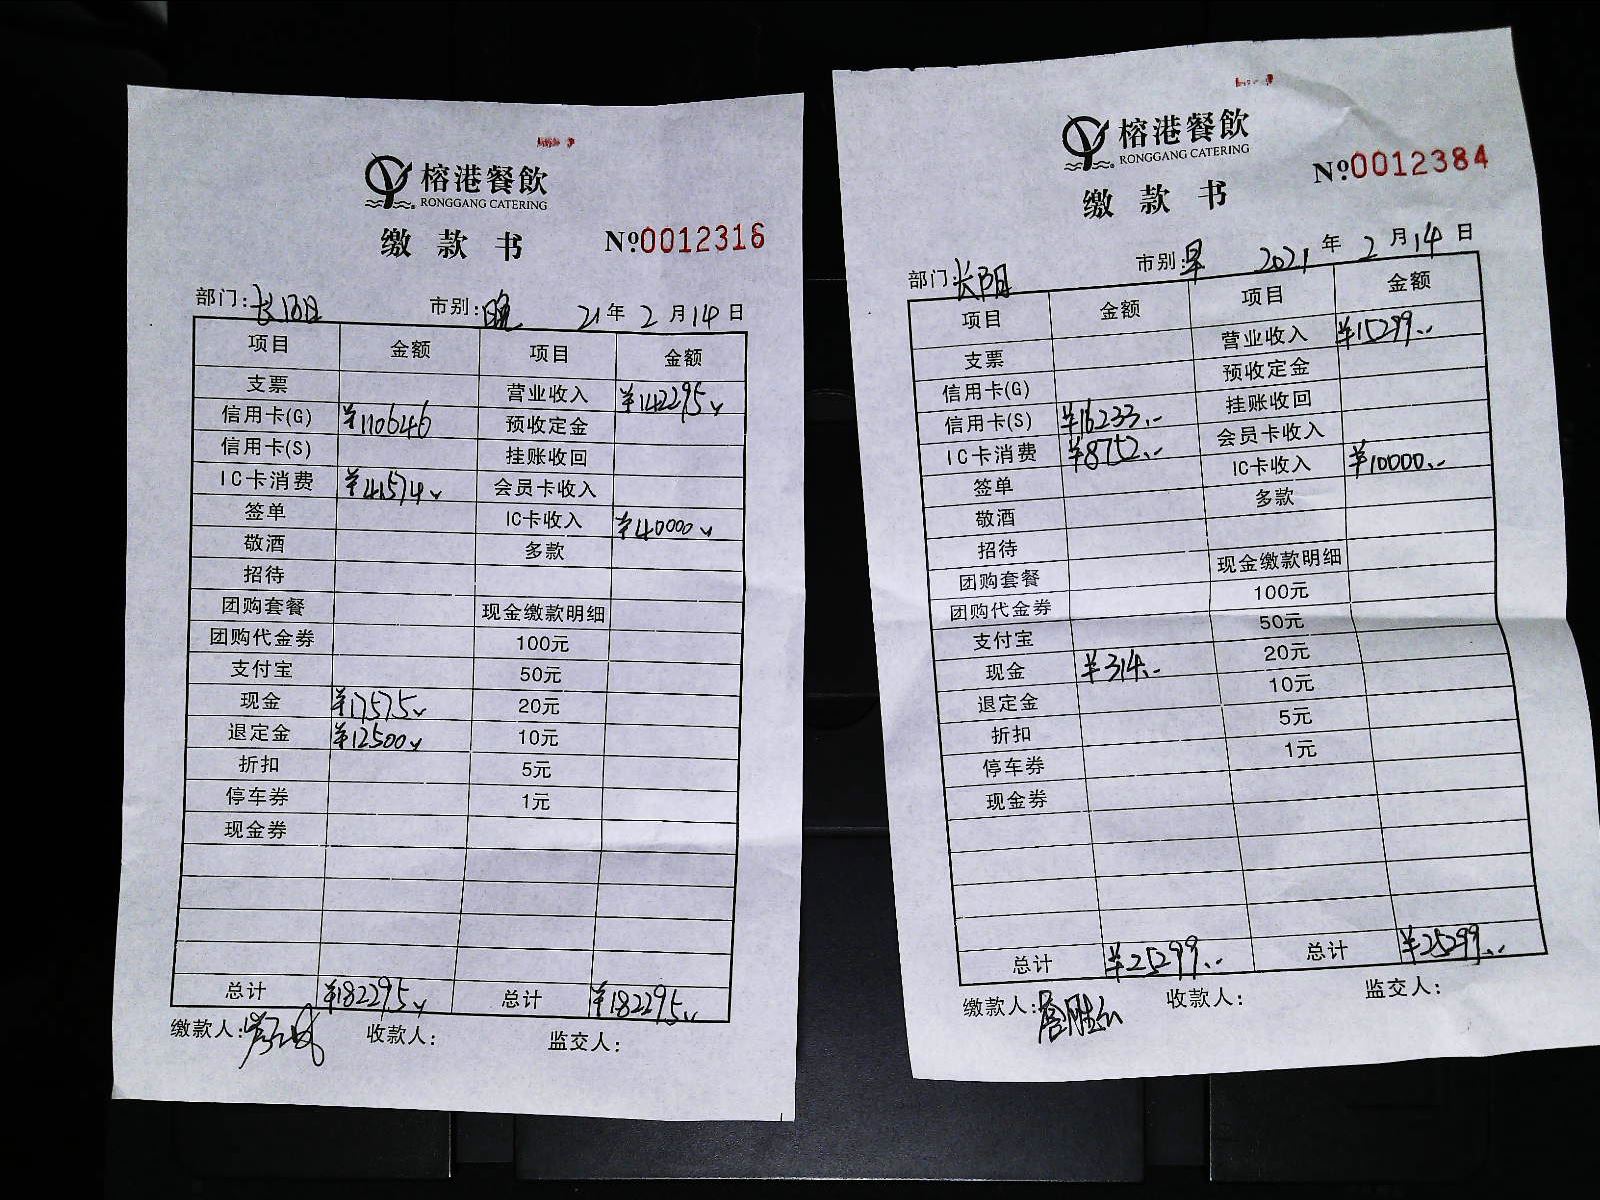 榕港餐飲
RONGGANG CATERING
缴款书
№0012316
部门:长阳 市别:晚 21年2月14日
项目 金额 项目 金额
支票 营业收入 ¥142295
信用卡(G) ¥110646 预收定金
信用卡(S) 挂账收回
IC卡消费 ¥41574 会员卡收入
签单 IC卡收入 ¥40000
敬酒 多款
招待
团购套餐 现金缴款明细
团购代金券 100元
支付宝 50元
现金 ¥17575 20元
退定金 ¥12500 10元
折扣 5元
停车券 1元
现金券
总计 ¥182295 总计 ¥182295
缴款人: 收款人: 监交人:
榕港餐飲
RONGGANG CATERING
缴款书
№0012384
部门:长阳 市别:早 2021年2月14日
项目 金额 项目 金额
支票 营业收入 ¥15299
信用卡(G) 预收定金
信用卡(S) ¥16233 挂账收回
IC卡消费 ¥8752 会员卡收入
签单 IC卡收入 ¥10000
敬酒 多款
招待
团购套餐 现金缴款明细
团购代金券 100元
支付宝 50元
现金 ¥314 20元
退定金 10元
折扣 5元
停车券 1元
现金券
总计 ¥25299 总计 ¥25299
缴款人: 收款人: 监交人: